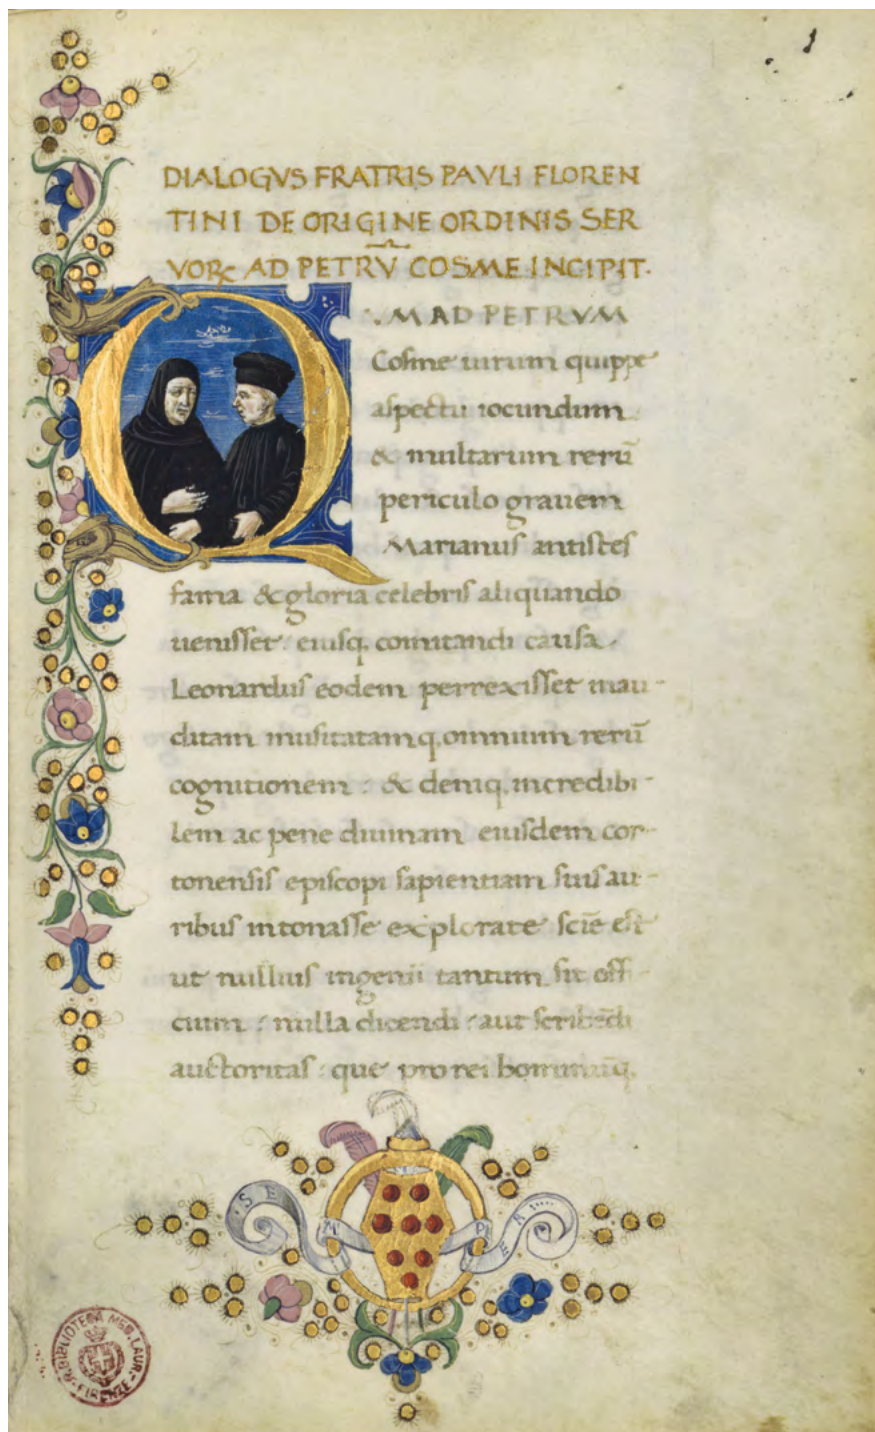 1
DIALOGVS FRATRIS PAVLI FLOREN
TINI DE ORIGINE ORDINIS SER
VORꝝ AD PETRV̄ COSME INCIPIT.
Q
VM AD PETRVM
Cosme uirum quippe
aspectu iocundum
& multarum rerū
periculo grauem
Marianus antistes
fama & gloria celebris aliquando
uenisset: eiusq. comitandi causa
Leonardus eodem perrexisset inau-
ditam inusitatamq. omnium rerū
cognitionem: & deniq. incredibi-
lem ac pene diuinam eiusdem cor-
tonensis episcopi sapientiam suis au-
ribus intonasse explorate scīe est
ut nullius ingenii tantum sit offi-
cium: nulla dicendi: aut scribēdi
auctoritas: que pro rei hominūq.
SEMPER
R. BIBLIOTECA MED. LAUR. FIRENZE